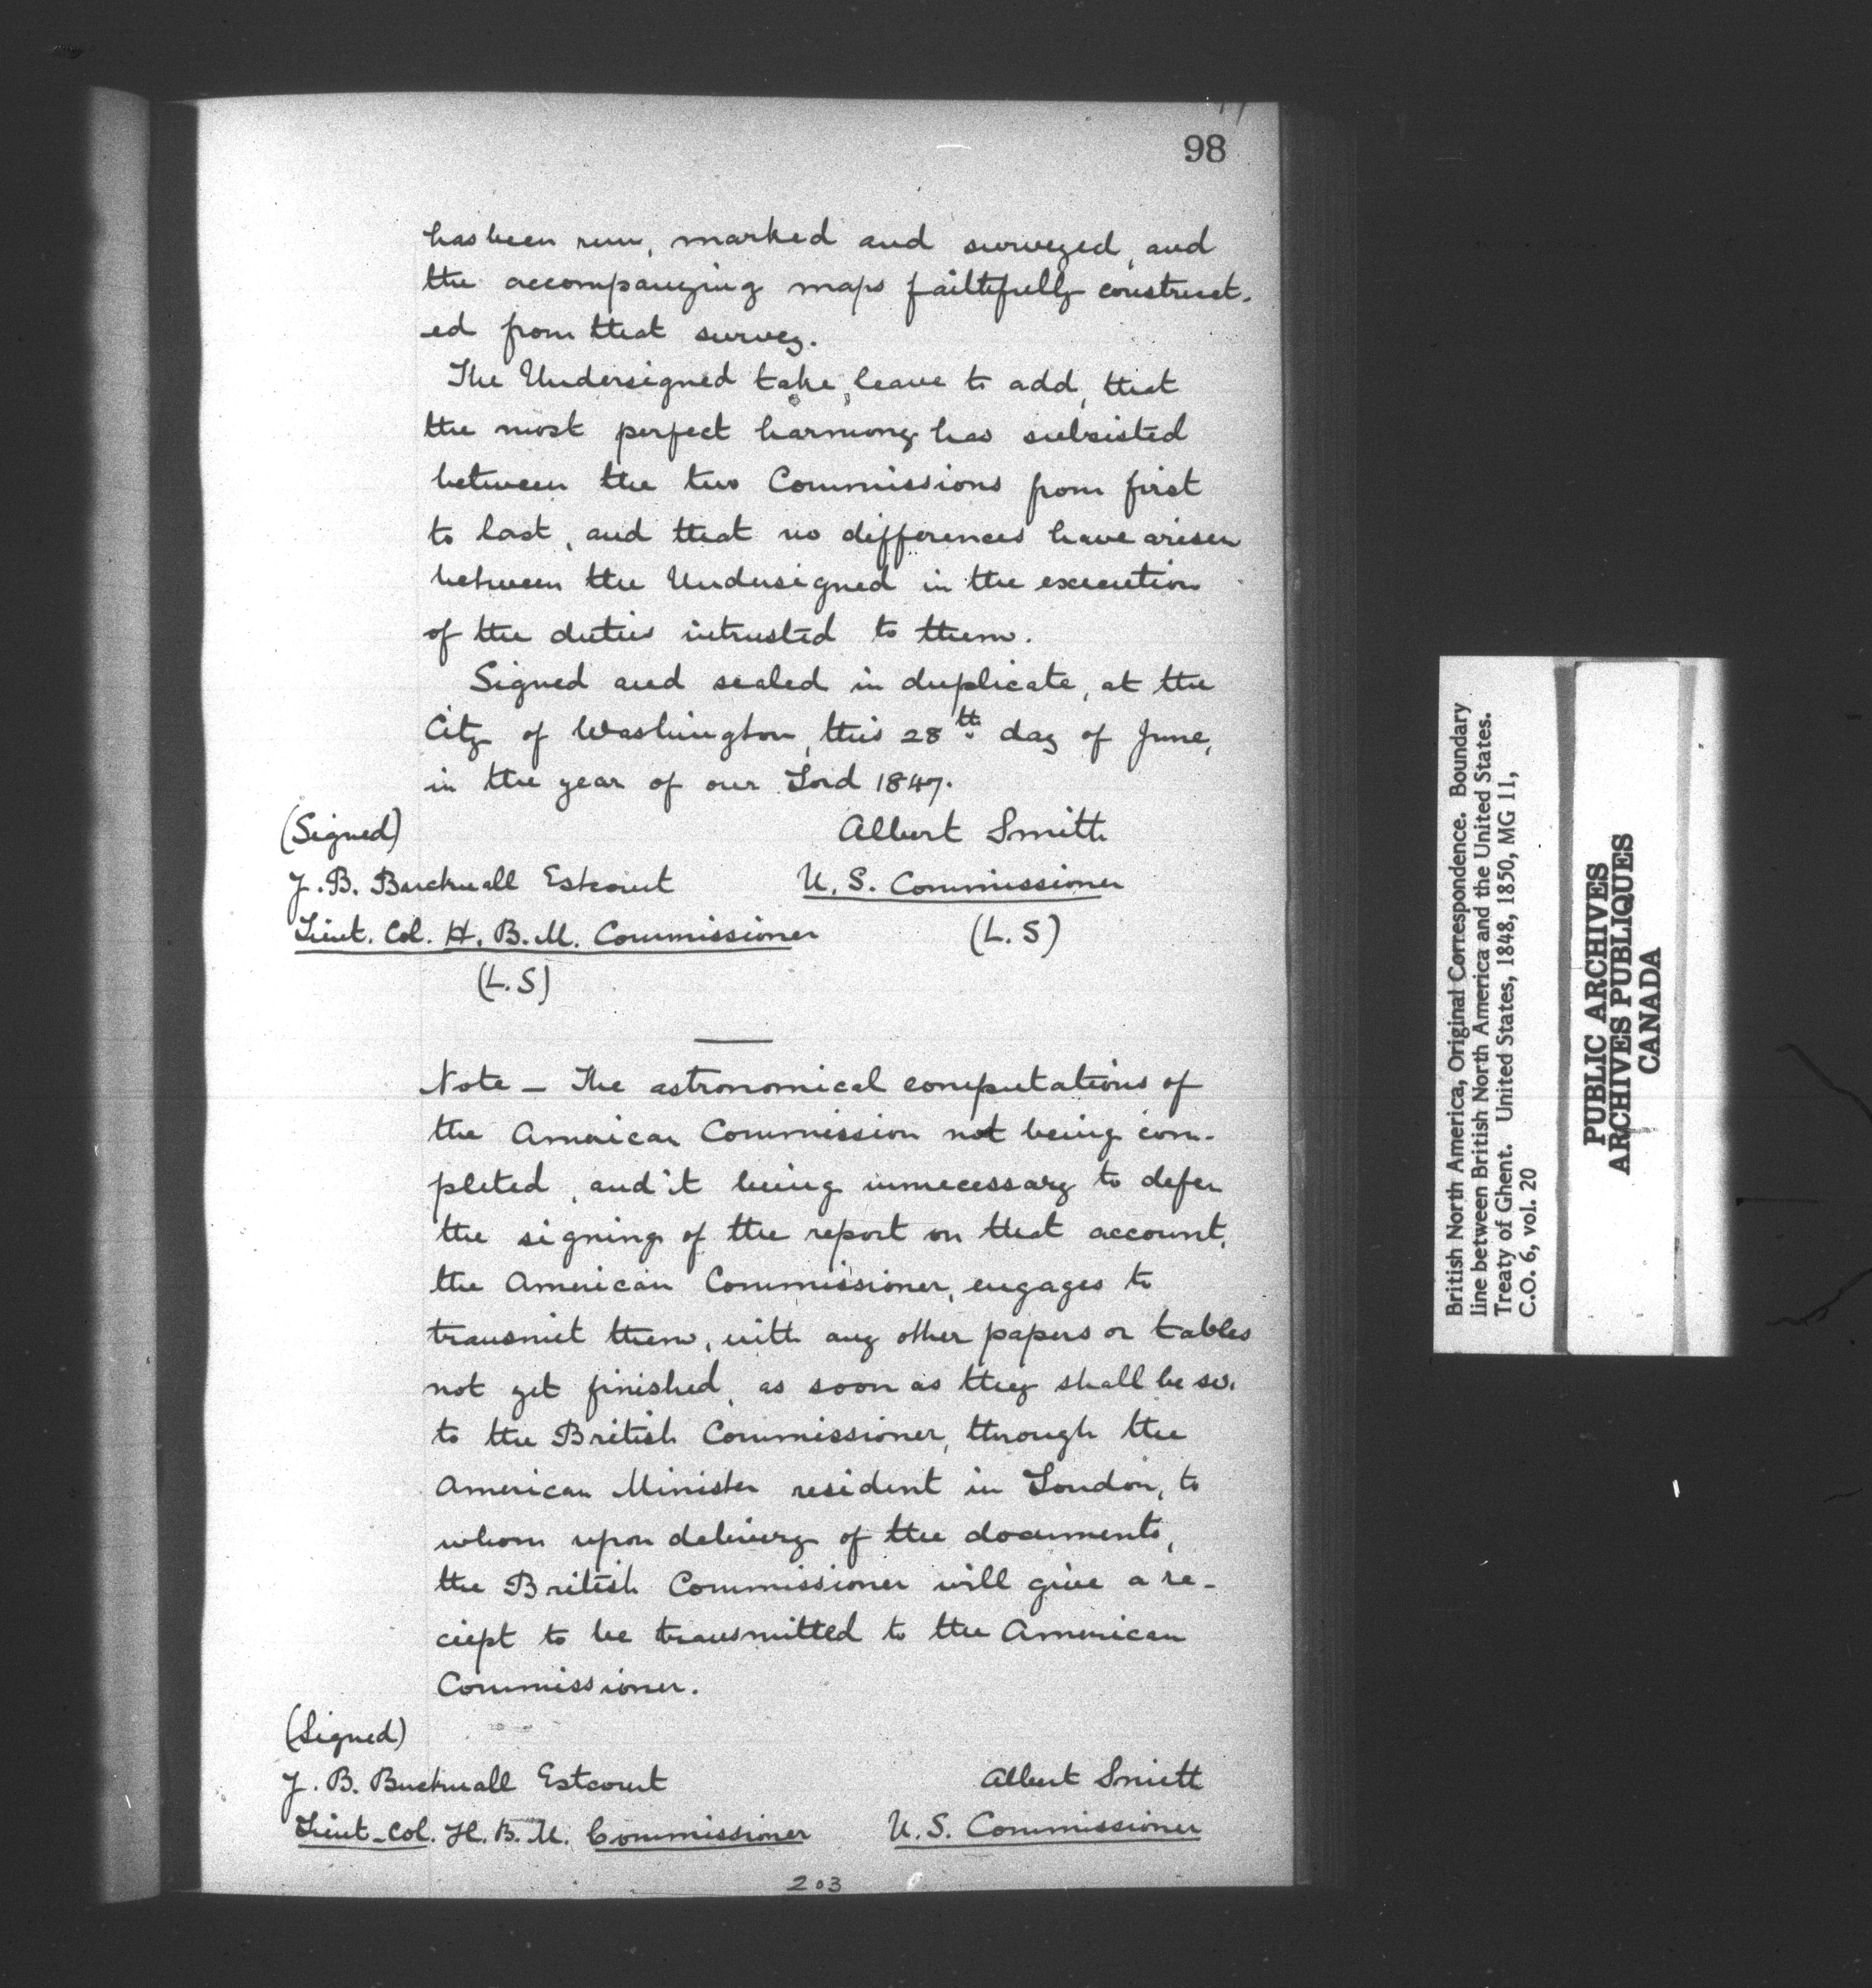 98
has been run, marked and surveyed, and
the accompanying maps faithfully construct-
ed from that survey.
The Undersigned take leave to add, that
the most perfect harmony has subsisted
between the two Commissions from first
to last, and that no differences have arisen
between the Undersigned in the execution
of the duties intrusted to them.
Signed and sealed in duplicate, at the
City of Washington, this 28th day of June,
in the year of our Lord 1847.
(Signed)
Albert Smith
J. B. Bucknall Estcourt
U. S. Commissioner
Lieut. Col. H. B. M. Commissioner
(L. S)
(L. S)
Note - The astronomical computations of
the American Commission not being com-
pleted, and it being unnecessary to defer
the signing of the report on that account,
the American Commissioner, engages to
transmit them, with any other papers or tables
not yet finished, as soon as they shall be so,
to the British Commissioner, through the
American Minister resident in London, to
whom upon delivery of the documents,
the British Commissioner will give a re-
ciept to be transmitted to the American
Commissioner.
(Signed)
J. B. Bucknall Estcourt
Albert Smith
Lieut-Col. H. B. M. Commissioner
U. S. Commissioner
203
British North America, Original Correspondence. Boundary
line between British North America and the United States.
Treaty of Ghent. United States, 1848, 1850, MG 11,
C.O. 6, vol. 20
PUBLIC ARCHIVES
ARCHIVES PUBLIQUES
CANADA